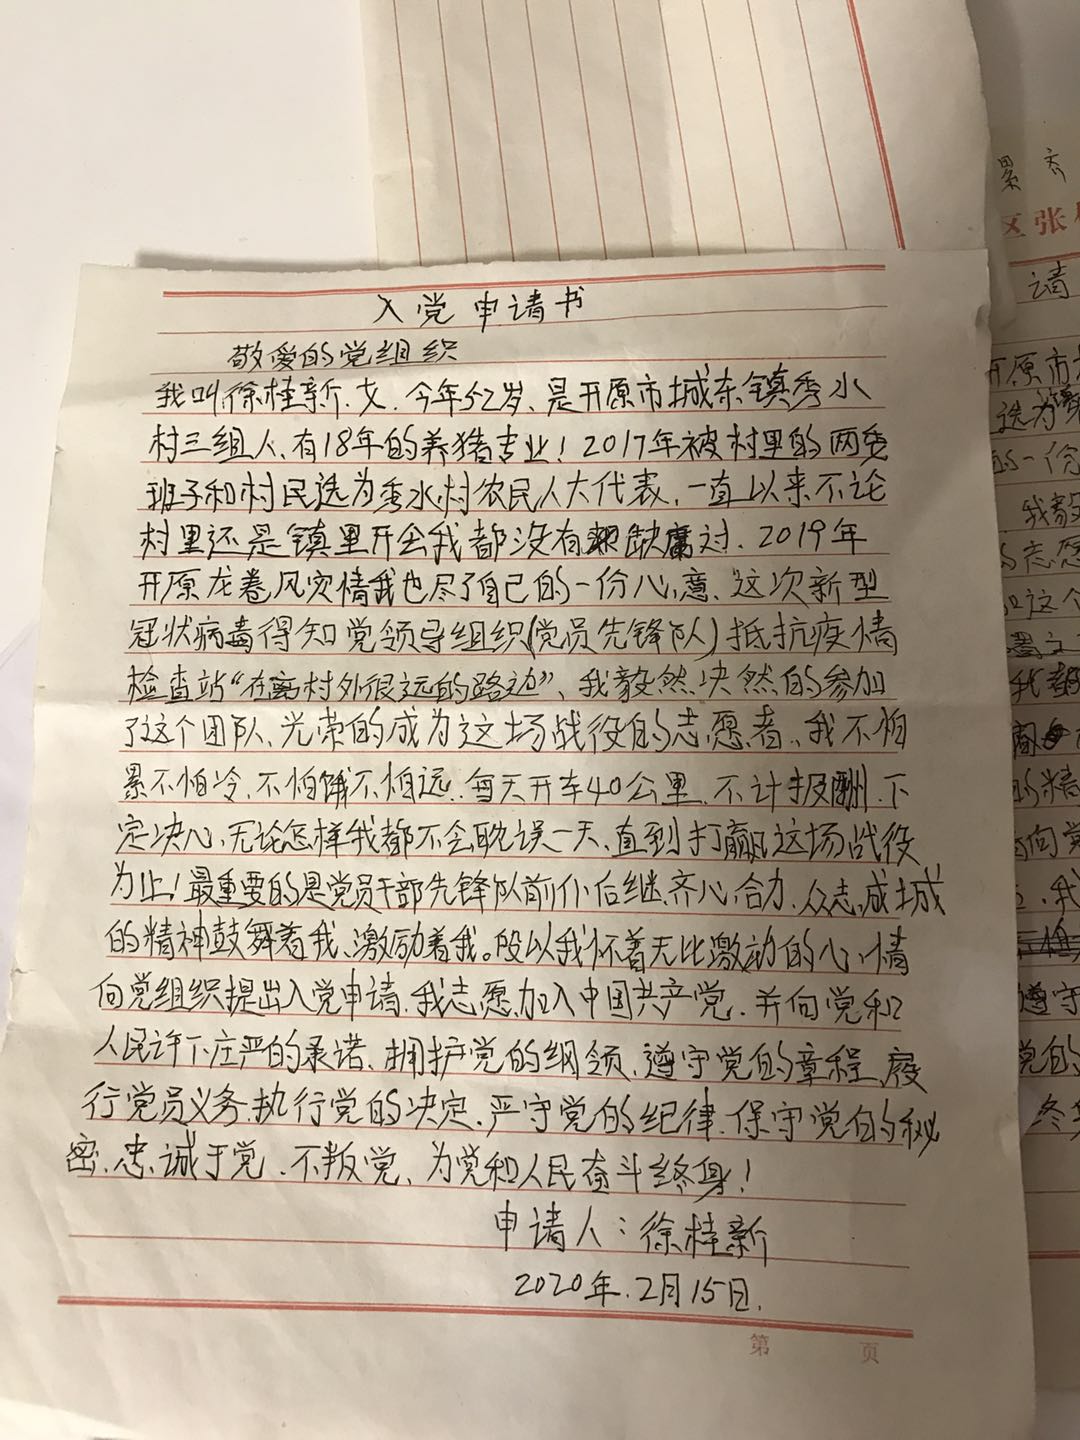 入党申请书
敬爱的党组织
我叫徐桂新、女、今年52岁、是开原市城东镇秀水
村三组人、有18年的养猪专业！2017年被村里的两委
班子和村民选为秀水村农民人大代表、一直以来不论
村里还是镇里开会我都没有缺席过、2019年
开原龙卷风灾情我也尽了自己的一份心意、这次新型
冠状病毒得知党领导组织(党员先锋队)抵抗疫情
检查站“在离村外很远的路边”、我毅然决然的参加
了这个团队、光荣的成为了这场战役的志愿者、我不怕
累不怕冷、不怕饿不怕远、每天开车40公里、不计报酬、下
定决心、无论怎样我都不会耽误一天、直到打赢这场战役
为止！最重要的是党员干部先锋队前仆后继、齐心合力、众志成城
的精神鼓舞着我、激励着我。所以我怀着无比激动的心情
向党组织提出入党申请、我志愿加入中国共产党、并向党和
人民许下庄严的承诺、拥护党的纲领、遵守党的章程、履
行党员义务、执行党的决定、严守党的纪律、保守党的秘
密、忠诚于党、不叛党、为党和人民奋斗终身！
申请人：徐桂新
2020年.2月15日.
第 页
累 齐
区张
请
开原市
选为
的一份
我毅
志愿
这个
我都
的精
向党
我
遵守
党的
终